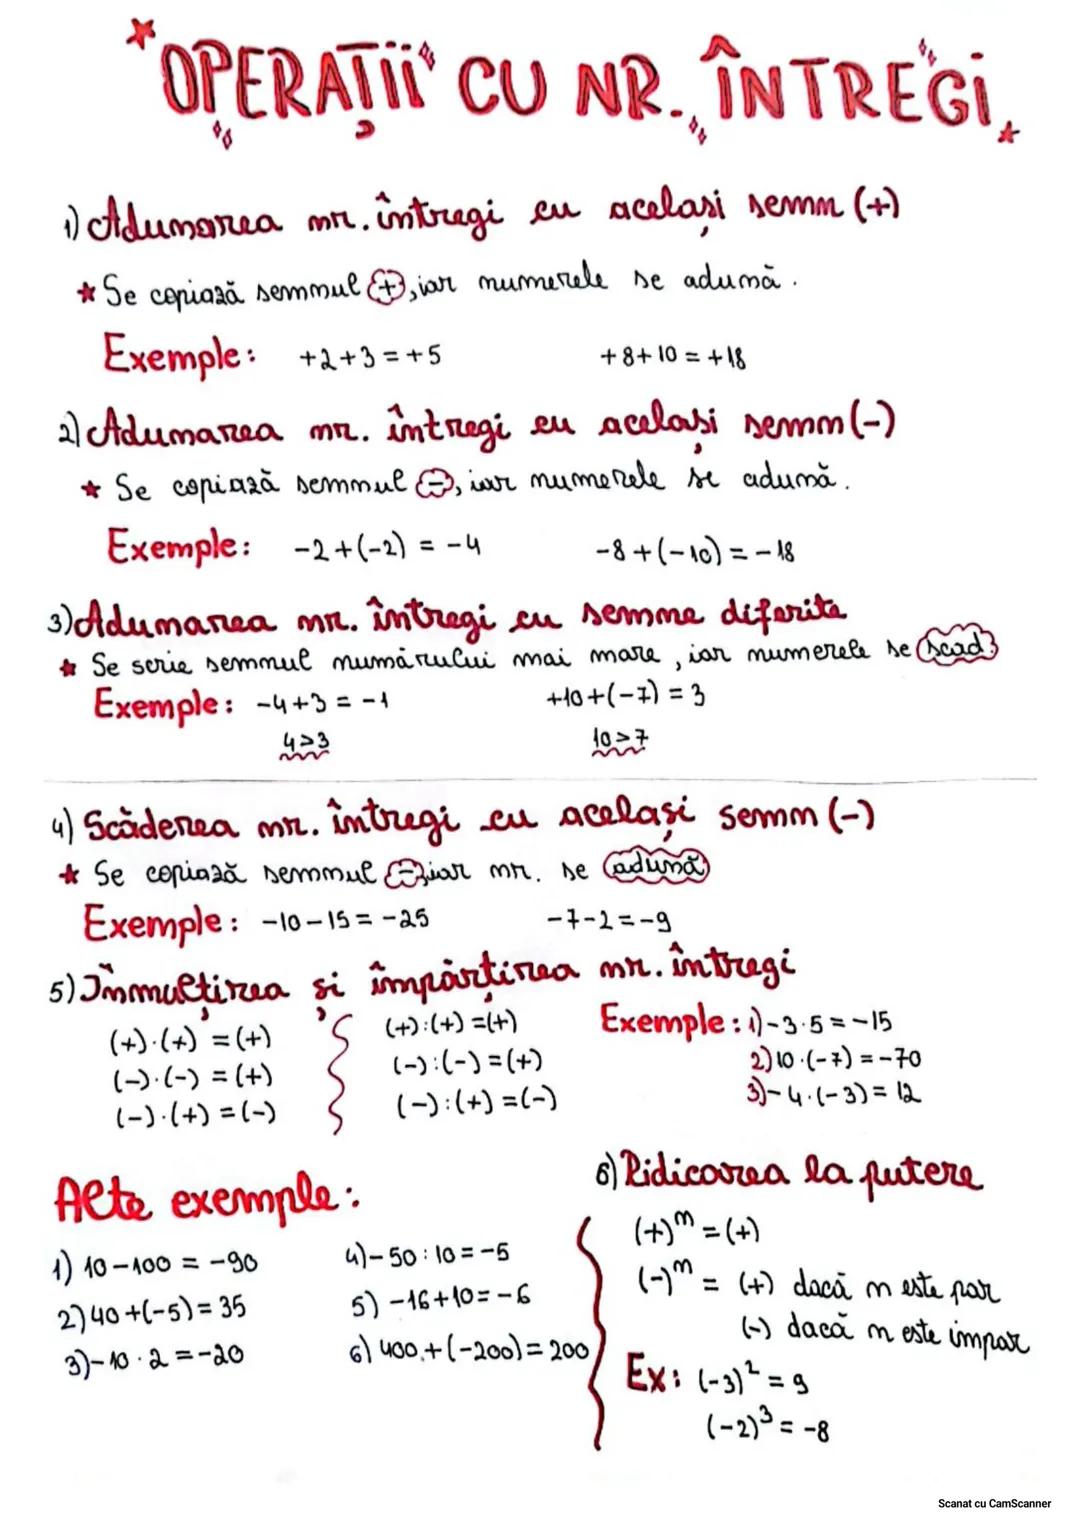 OPERAȚII CU NR. ÎNTREGI
1) Adunarea nr. întregi cu același semn (+)
Se copiază semnul (+), iar numerele se adună.
Exemple: +2+3=+5 +8+10=+18
2) Adunarea nr. întregi cu același semn (-)
Se copiază semnul (-), iar numerele se adună.
Exemple: -2+(-2) = -4 -8+(-10) = -18
3) Adunarea nr. întregi cu semne diferite
Se scrie semnul numărului mai mare, iar numerele se scad.
Exemple: -4+3 = -1 +10+(-7) = 3
4>3 10>7
4) Scăderea nr. întregi cu același semn (-)
Se copiază semnul (-), iar nr. se adună
Exemple: -10-15 = -25 -7-2=-9
5) Înmulțirea și împărțirea nr. întregi
(+)·(+) = (+) (+):(+) =(+) Exemple: 1) -3·5 = -15
(-)·(-) = (+) (-):(-) = (+) 2) 10·(-7) = -70
(-)·(+) = (-) (-):(+) = (-) 3) -4·(-3) = 12
Alte exemple:
1) 10-100 = -90 4) -50:10 = -5
2) 40+(-5) = 35 5) -16+10 = -6
3) -10·2 = -20 6) 400+(-200) = 200
6) Ridicarea la putere
(+)ⁿ = (+)
(-)ⁿ = (+) dacă n este par
(-) dacă n este impar
Ex: (-3)² = 9
(-2)³ = -8
Scanat cu CamScanner